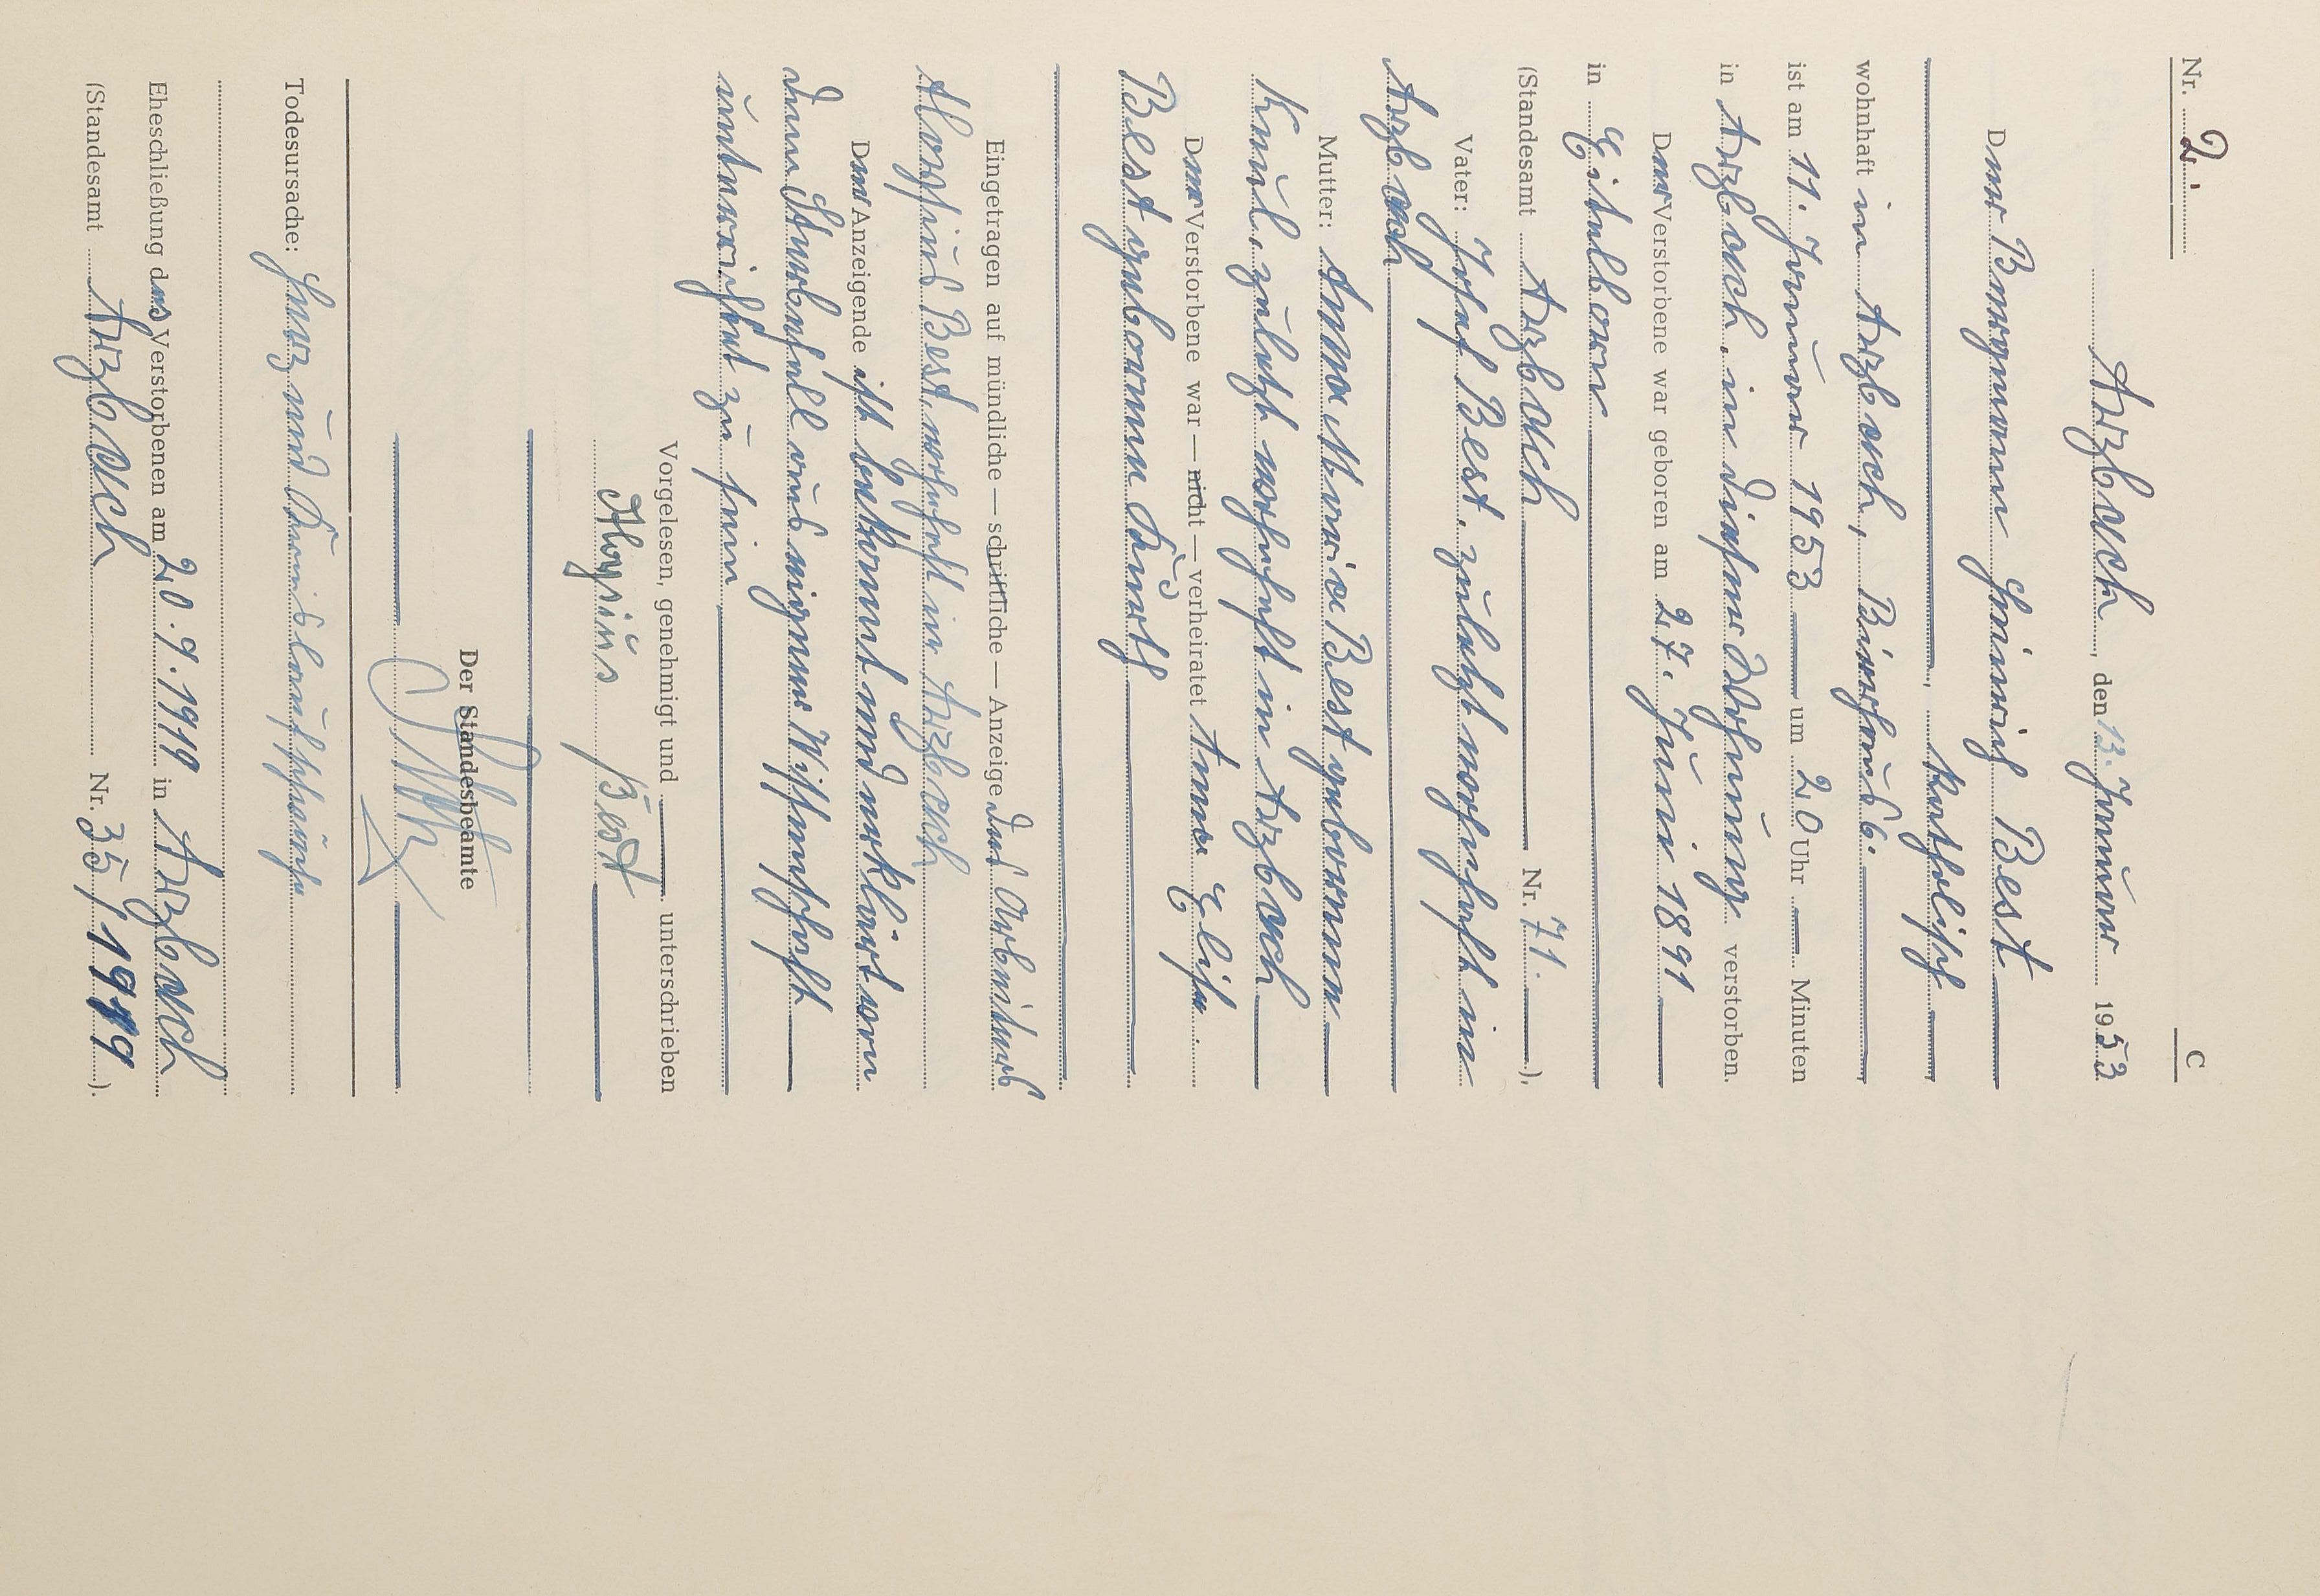 Nr. 2. C
Arzbach, den 13. Januar 1953
Der Bergmann Heinrich Best
, katholisch
wohnhaft in Arzbach, Bierhaus 6.
ist am 11. Januar 1953 um 20 Uhr — Minuten
in Arzbach, in dieser Wohnung verstorben.
Der Verstorbene war geboren am 27. Juni 1891
in Eitelborn
(Standesamt Arzbach Nr. 71. ).
Vater: Josef Best, zuletzt wohnhaft in
Arzbach
Mutter: Anna Maria Best geborenen
zuletzt wohnhaft in Arzbach
Der Verstorbene war — nicht — verheiratet Anna Elise
Best geborene Kurth
Eingetragen auf mündliche — schriftliche — Anzeige des Arbeiters
Aloysius Best, wohnhaft in Arzbach
Der Anzeigende ist bekannt und erklärt von
dem Sterbefall aus eigener Wissenschaft
unterrichtet zu sein
Vorgelesen, genehmigt und unterschrieben
Aloysius Best
Der Standesbeamte
Todesursache: Herz und Kreislaufschwäche
Eheschließung des Verstorbenen am 20.9.1919 in Arzbach
(Standesamt Arzbach Nr. 35/1919 ).